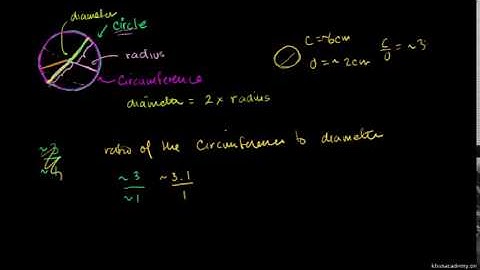 diameter
circle
radius
circumference
diameter = 2 x radius
C = ~6cm
D = ~2cm
C/D = ~3
ratio of the circumference to diameter
~3/~1
~3.1/1
khanacademy.org